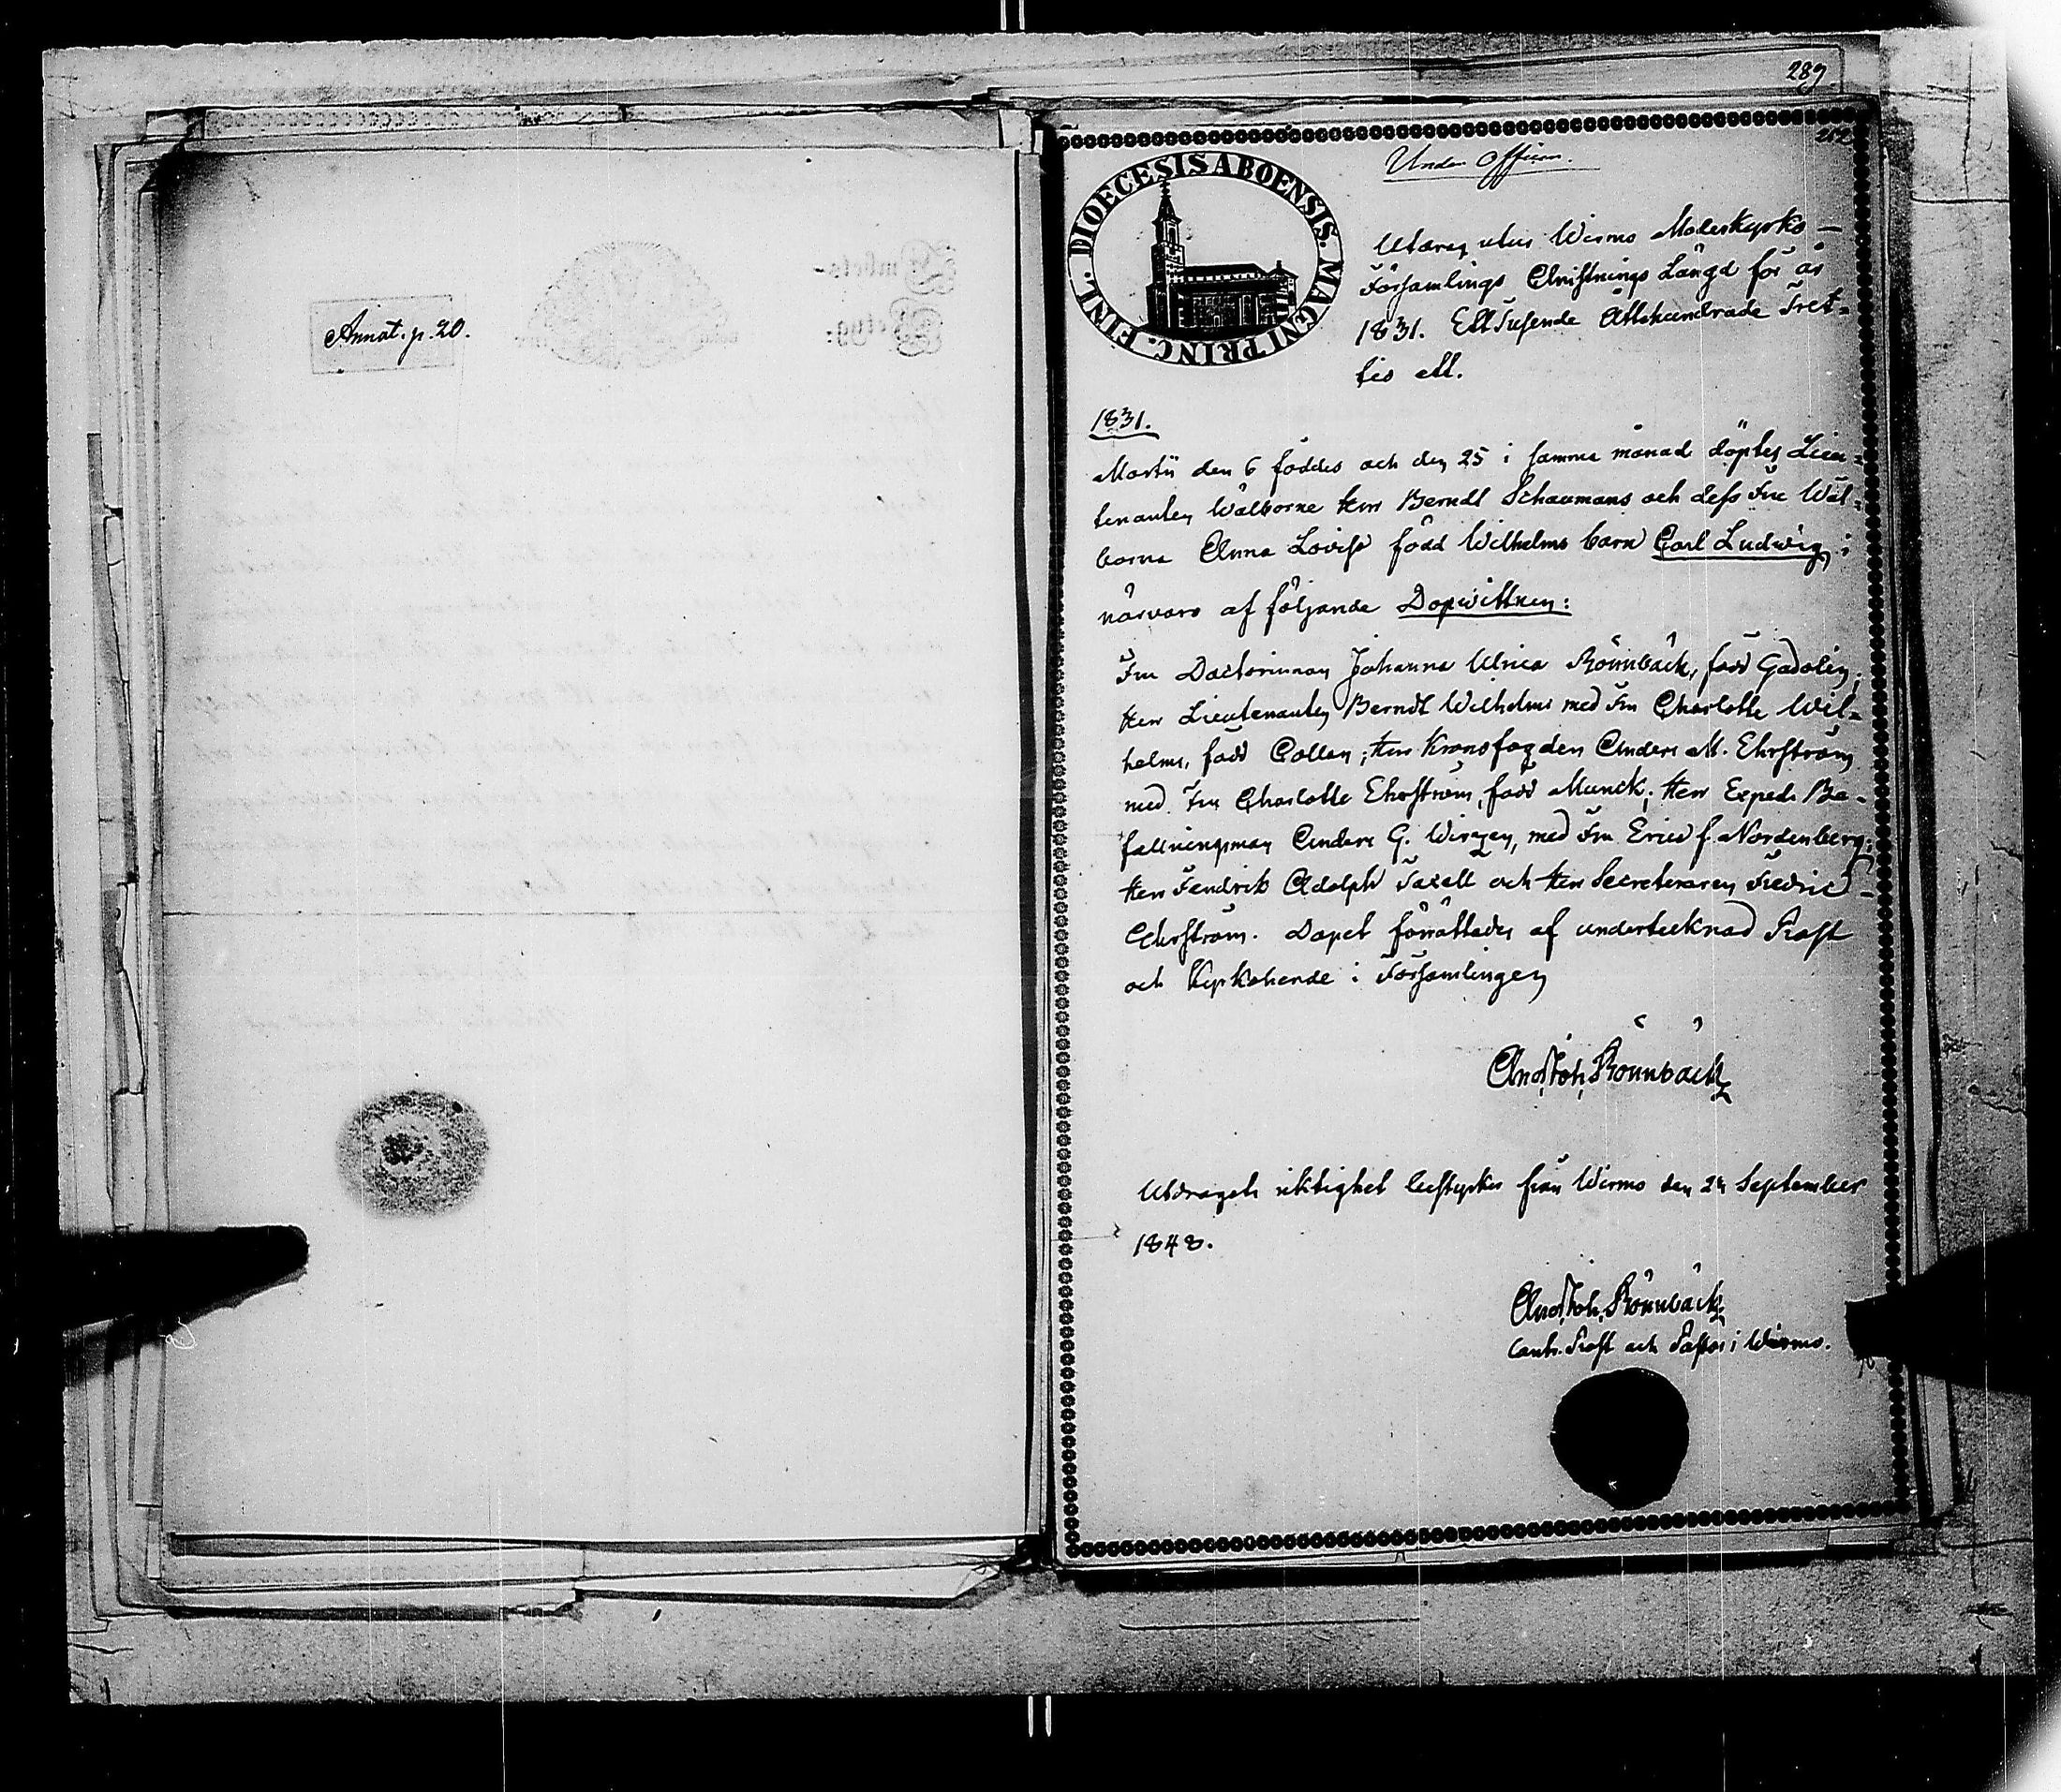 Annot. p. 20.
289
DIOECESIS ABOENSIS. MAGNI PRINC. FINL.
Under officier.
Utdrag utur Wirmo Moderkyrko-
Församlings Christnings Längd för år
1831. Ett Tusende Åttahundrade Tret-
tio ett.
1831.
Martii den 6 föddes och den 25 i samma månad döptes Lieu-
tenanten Wälborne Herr Berndt Schaumans och dess Fru Wäl-
borna Anna Lovisa född Wilhelms barn Carl Ludwig, i
närvaro af följande Dopwittnen:
Fru Doctorinnan Johanna Ulrica Rönnbäck, född Gadolin;
Herr Lieutenanten Berndt Wilhelms med Fru Charlotte Wil-
helms, född Collen; Herr Kronofogden Anders M. Ehrström
med Fru Charlotte Ehrström, född Munck; Herr Exped. Be-
fallningsman Anders G. Wirzen, med Fru Erica f. Nordenberg;
Herr Fendrik Adolph Taxell och Herr Secreteraren Fredric
Ehrström. Dopet förrättades af undertecknad Prost
och Kyrkoherde i Församlingen
And. Joh. Rönnbäck
Utdragets riktighet bestyrker från Wirmo den 24 September
1848.
And. Joh. Rönnbäck
Contr. Prost och Pastor i Wirmo.